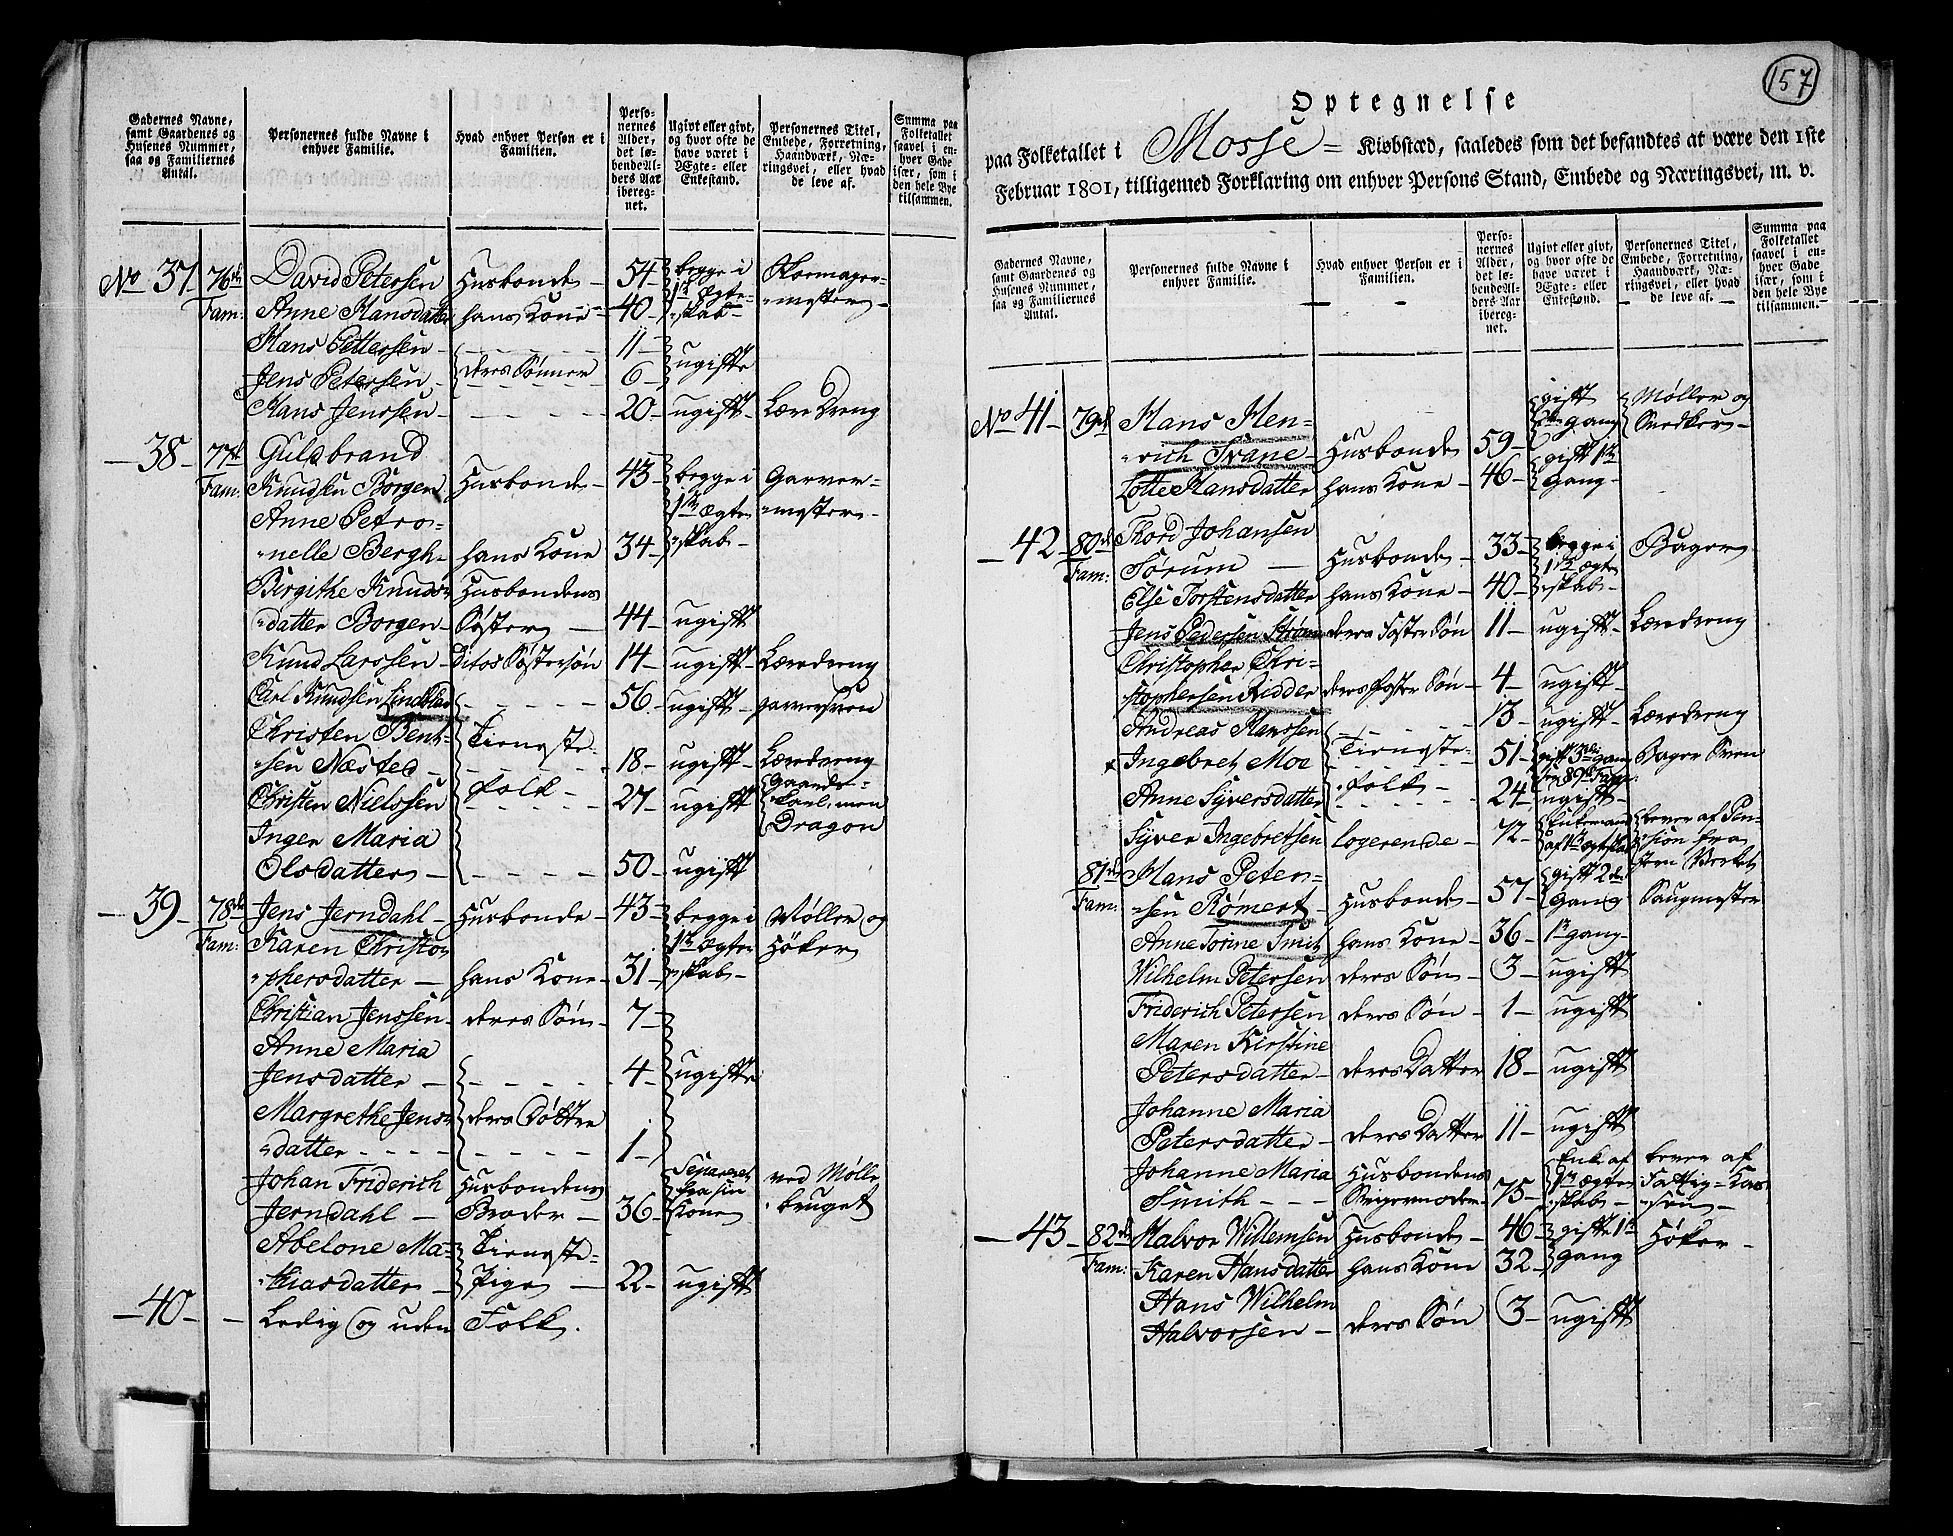 Gadernes Navne, samt Gaardenes og Husenes Nummer, saa og Familiernes Antal.
Personernes fulde Navne i enhver Familie.
Hvad enhver Person er i Familien.
Personernes Alder, det løbende Alders Aar iberegnet.
Ugivt eller givt, og hvor ofte de have været i Ægte- eller Enkestand.
Personernes Titel, Embede, Forretning, Haandværk, Næringsvei, eller hvad de leve af.
Summa paa Folketallet saavel i enhver Gade især, som i den hele Bye tilsammen.
No 37 76de David Petersen Husbonde - 54 - begge i Skomager-
Fam: Anne Hansdatter hans Kone - 40 - 1te Ægte-skab mester
Hans Pettersen - - - - 11 -
Jens Petersen - deres Sønner 6 - ugifte
Hans Jenssen - - - - 20 - ugift - Lære Dreng
- 38 - 77de Gulsbrand
Fam: Knudsen Borgen Husbonde - 43 - begge i Garver-
Anne Petro- 1te Ægte mester -
nelle Bergh - hans Kone 34 - skab -
Birgithe Knuds Husbondens
datter Borgen - Søster - 44 - ugift
Knud Larssen - Ditos Søstersøn 14 - ugift - Læredreng
Carl Knudsen Lindblad - - - 56 - ugift - garversvend
Christen Bent- Tieneste-
sen Næsted - - - 18 - ugift - Læredreng
Christen Nielssen folk - - 27 - ugift Gaards-karl, men
Inger Maria Dragon
Olsdatter - - - - 50 - ugift
- 39 - 78de Jens Jerndahl - Husbonde - 43 - begge i Møller og
Fam: Karen Christo 1te Ægte Høker
phersdatter - hans Kone - 31 - skab -
Christian Jenssen - deres Søn - 7 -
Anne Maria
Jensdatter - - - - 4 - ugifte
Margrethe Jens deres Døttre
datter - - - - 1 -
Johan Friderich Husbondens Separeret fra sin ved Mølle
Jerndahl - Broder - 36 - Kone bruget
Abelone Ma- Tieneste-
thiasdatter - Pige - 22 - ugift
- 40 - - Ledig og uden Folk.
157
Optegnelse
paa Folketallet i Mosse - Kiøbstæd, saaledes som det befandtes at være den 1ste
Februar 1801, tilligemed Forklaring om enhver Persons Stand, Embede og Næringsvei, m. v.
Gadernes Navne, samt Gaardenes og Husenes Nummer, saa og Familiernes Antal.
Personernes fulde Navne i enhver Familie.
Hvad enhver Person er i Familien.
Personernes Alder, det løbende Alders Aar iberegnet.
Ugivt eller givt, og hvor ofte de have været i Ægte- eller Enkestand.
Personernes Titel, Embede, Forretning, Haandværk, Næringsvei, eller hvad de leve af.
Summa paa Folketallet saavel i enhver Gade især, som i den hele Bye tilsammen.
No 41 - 79de Hans Hen- gift gang Møller og
rich Svane - Husbonde 59 - Snedker -
Lotte Hansdatter hans Kone - 46 - gift 1te Gang -
- 42 - 80de Thord Johansen
Fam: Sørum - Husbonde - 33 - begge i Bager -
Else Torstensdatter hans Kone - 40 - 1te Ægte skab -
Jens Pedersen Strøm deres Foster Søn 11 - ugift - Læredreng
Christopher Chri-
stophersen Ridder deres Foster Søn - 4 - ugift -
Andreas Hanssen - - - 13 - ugift - Læredreng
Ingebret Moe Tieneste- 51 - gift gang Bager Svend
Anne Syversdatter folk - 24 - ugift -
Syver Ingebretsen logerende - 72 - Enkemand af 1te Ægteskab lever af Pen-sion fra Værket
81de Hans Peter- gift 2den
Fam: sen Rømert - Husbonde - 57 - Gang Saugmester
Anne Torine Smit hans Kone - 36 - 1te gang -
Wilhelm Petersen deres Søn - 3 - ugift
Friderich Petersen deres Søn - 1 - ugift
Maren Kirstine
Petersdatter - deres Datter 18 - ugift
Johanne Maria
Petersdatter - deres Datter 11 - ugift
Johanne Maria Husbondens Enke af lever af
Smith - - - Svigermoder - 75 - 1te Ægte skab - Fattig-Kas sen -
- 43 - 82de Halvor Willemsen Husbonde - 46 - gifte 1te Høker -
Fam: Karen Hansdatter hans Kone 32 - gang
Hans Wilhelm
Halvorsen - deres Søn 3 - ugift